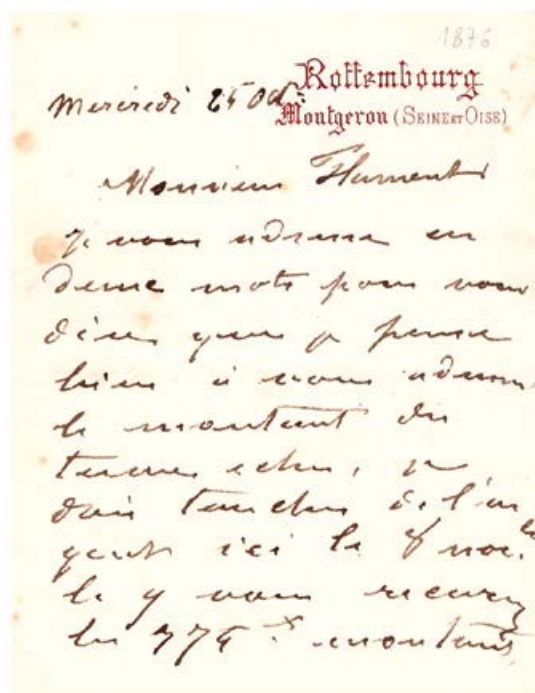 1876
Rottembourg
Mercredi 25 Oct.
Montgeron (SEINE ET OISE)
Monsieur Flament
je vous adresse en
deux mots pour vous
dire que je pense
bien à vous adresser
le montant du
terme echu, je
dois toucher de l'ar
gent ici le 8 nov.
le 9 vous recevrez
les 775 f montant